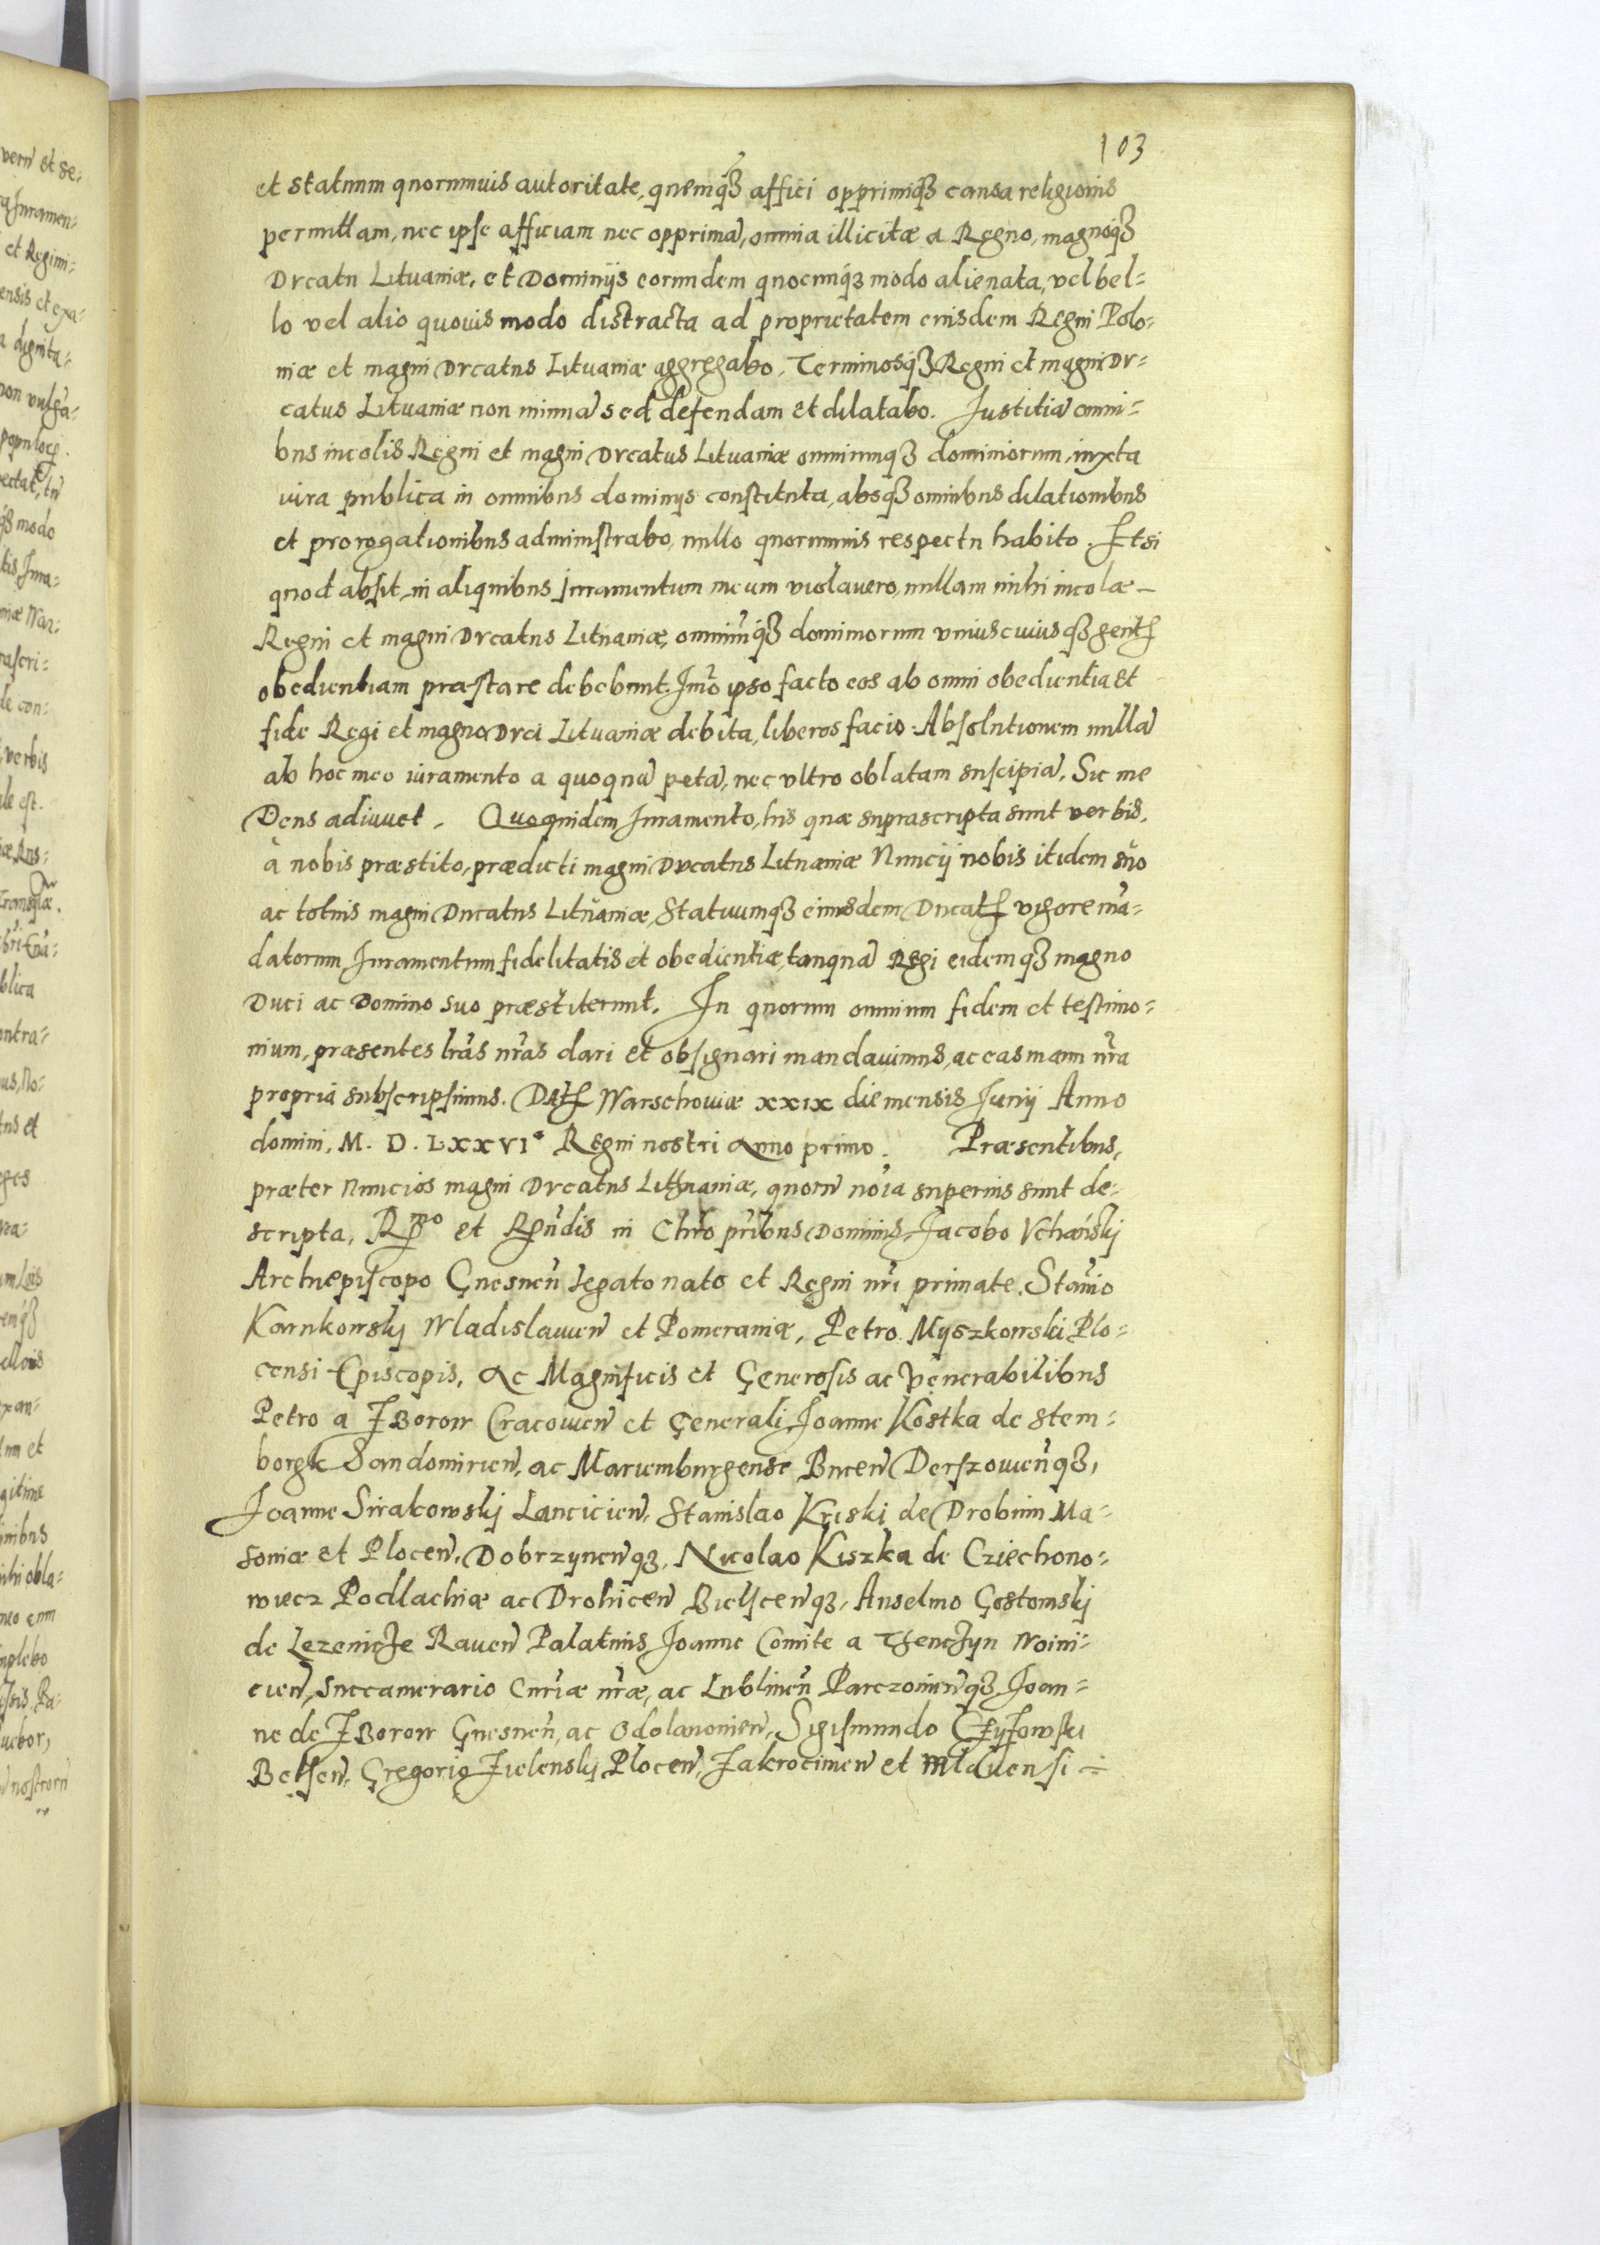 103
et statuum quorumuis autoritate, quemq́ȝ affici opprimiqȝ causa religionis
permittam, nec ipse afficiam nec opprimã, omnia illicitæ a Regno, magnoq́ȝ
Ducatu Lituaniæ, et Dominijs eorundem quocunq́ȝ modo alienata, vel bel-
lo vel alio quouis modo distracta ad proprietatem eiusdem Regni Polo-
niæ et magni Ducatus Lituaniæ aggregabo, Terminosq́ȝ Regni et magni Du-
catus Lituaniæ non minuã sed defendam et dilatabo. Justitiã omni-
bus incolis Regni et magni Ducatus Lituaniæ omniumqȝ dominiorum, iuxta
iura publica in omnibus dominijs constituta, absqȝ omnibus dilationibus
et prorogationibus administrabo, nullo quorumuis respectu habito. Etsi
quod absit, in aliquibus Juramentum meum violauero, nullam mihi incolæ
Regni et magni Ducatus Lituaniæ, omniũq́ȝ dominiorum vniuscuiusqȝ gentꝭ
obedientiam præstare debebunt. Jmò ipso facto eos ab omni obedientia et
fide Regi et magno Duci Lituaniæ debita, liberos facio. Absolutionem nullã
ab hoc meo iuramento a quoquã petã, nec vltro oblatam suscipiã, Sic me
Deus adiuuet. Quoquidem Juramento, his quæ suprascripta sunt verbis,
à nobis præstito, prædicti magni Ducatus Lituaniæ Nuncij nobis itidem suo
ac totius magni Ducatus Lituaniæ, Statuumqȝ eiusdem Ducatꝭ vigore mã-
datorum Juramentum fidelitatis et obedientiæ, tanquã Regi eidemqȝ magno
Duci ac Domino suo præstiterunt. In quorum omnium fidem et testimo-
nium, præsentes lr̃as nr̃as dari et obsignari mandauimus, ac eas manu nr̃a
propria subscripsimus. Datꝭ Warschouiæ XXIX die mensis Junij Anno
domini, M. D. LXXVI° Regni nostri Anno primo. Præsentibus,
præter Nuncios magni Ducatus Lithuaniæ, quorũ noĩa superius sunt de-
scripta, et in Chro pr̃ibus Dominis, Jacobo Vchański
Archiepiscopo Gnesneñ Legato nato et Regni nr̃i primate, Stanio
Karnkowskj Wladislauieñ et Pomeraniæ, Petro Myszkowski Plo-
censi Episcopis, Ac Magnificis et Generosis ac Venerabilibus
Petro a Zborow Cracouieñ et Generali, Joanne Kostka de Stem-
borgk Sandomirieñ, ac Mariemburgense Derszouieñqȝ,
Joanne Sirakowskj Lancicieñ, Stanislao Kriski de Drobnin Ma-
souiæ et Ploceñ, Dobrzyneñqȝ, Nicolao Kiszka de Cziechono-
wiecz Podlachiæ ac Drohiceñ Bielsceñqȝ, Anselmo Gostomskj
de Lezenicze Raueñ Palatinis Joanne Comite a Thenczyn Woini-
cieñ, Succamerario Curiæ nr̃æ, ac Lublineñ Parczouieñqȝ, Joan-
ne de Zborow Gnesneñ, ac Odolanouieñ, Sigismundo Czyzowski
Belseñ, Gregorio Zielenskj Ploceñ, Zakrocimeñ et Mlauensi